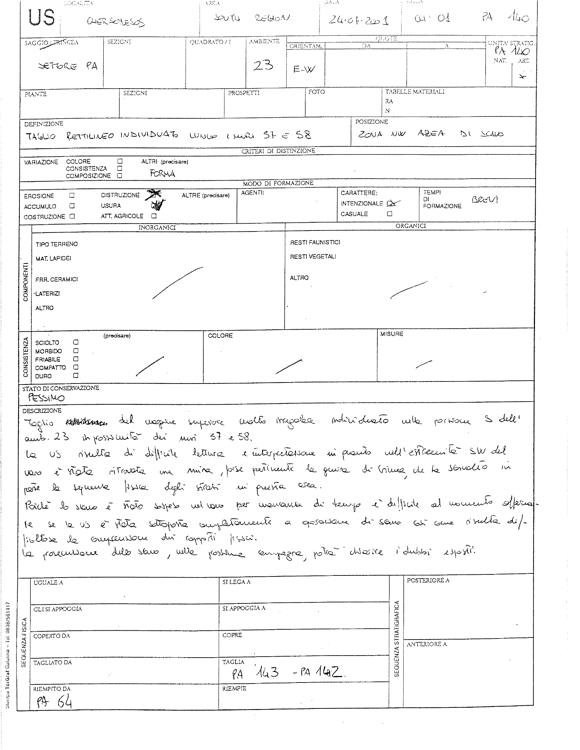 US
LOCALITÀ
CHERSONESOS
AREA
SOUTH REGION
24-07-2001
01:01
PA 140
SAGGIO / TRINCEA
SETTORE PA
SEZIONI
QUADRATO / I
AMBIENTE
23
QUOTE
ORIENTAM.
DA
A
E-W
UNITA' STRATIG.
PA 140
NAT.
ART.
PIANTE
SEZIONI
PROSPETTI
FOTO
TABELLE MATERIALI
RA
N
DEFINIZIONE
TAGLIO RETTILINEO INDIVIDUATO LUNGO I MURI 57 E 58
POSIZIONE
ZONA NW AREA DI SCAVO
CRITERI DI DISTINZIONE
VARIAZIONE
COLORE
CONSISTENZA
COMPOSIZIONE
ALTRI (precisare)
FORMA
MODO DI FORMAZIONE
EROSIONE
ACCUMULO
COSTRUZIONE
DISTRUZIONE
USURA
ATT. AGRICOLE
ALTRE (precisare)
AGENTI:
CARATTERE:
INTENZIONALE
CASUALE
TEMPI
DI
FORMAZIONE
BREVI
COMPONENTI
INORGANICI
TIPO TERRENO
MAT. LAPIDEI
FRR. CERAMICI
LATERIZI
ALTRO
ORGANICI
RESTI FAUNISTICI
RESTI VEGETALI
ALTRO
CONSISTENZA
SCIOLTO
MORBIDO
FRIABILE
COMPATTO
DURO
(precisare)
COLORE
MISURE
STATO DI CONSERVAZIONE
PESSIMO
DESCRIZIONE
Taglio del margine superiore molto irregolare individuato nella porzione S dell'
amb. 23 in prossimità dei muri 57 e 58.
La US risulta di difficile lettura e interpretazione in quanto nell'estremità SW del
vano è stata ritrovata una mina, forse pertinente la guerra di Crimea, che ha sconvolto in
parte la sequenza fisica degli strati in questa area.
Poiché lo scavo è stato sospeso nel vano per mancanza di tempo è difficile al momento afferma-
re se la US è stata sottoposta completamente a operazione di scavo così come risulta dif-
ficoltosa la comprensione dei rapporti fisici.
La prosecuzione dello scavo, nella prossima campagna, potrà chiarire i dubbi esposti.
SEQUENZA FISICA
UGUALE A
SI LEGA A
GLI SI APPOGGIA
SI APPOGGIA A
COPERTO DA
COPRE
TAGLIATO DA
TAGLIA
PA 143 - PA 142
RIEMPITO DA
PA 64
RIEMPIE
SEQUENZA STRATIGRAFICA
POSTERIORE A
ANTERIORE A